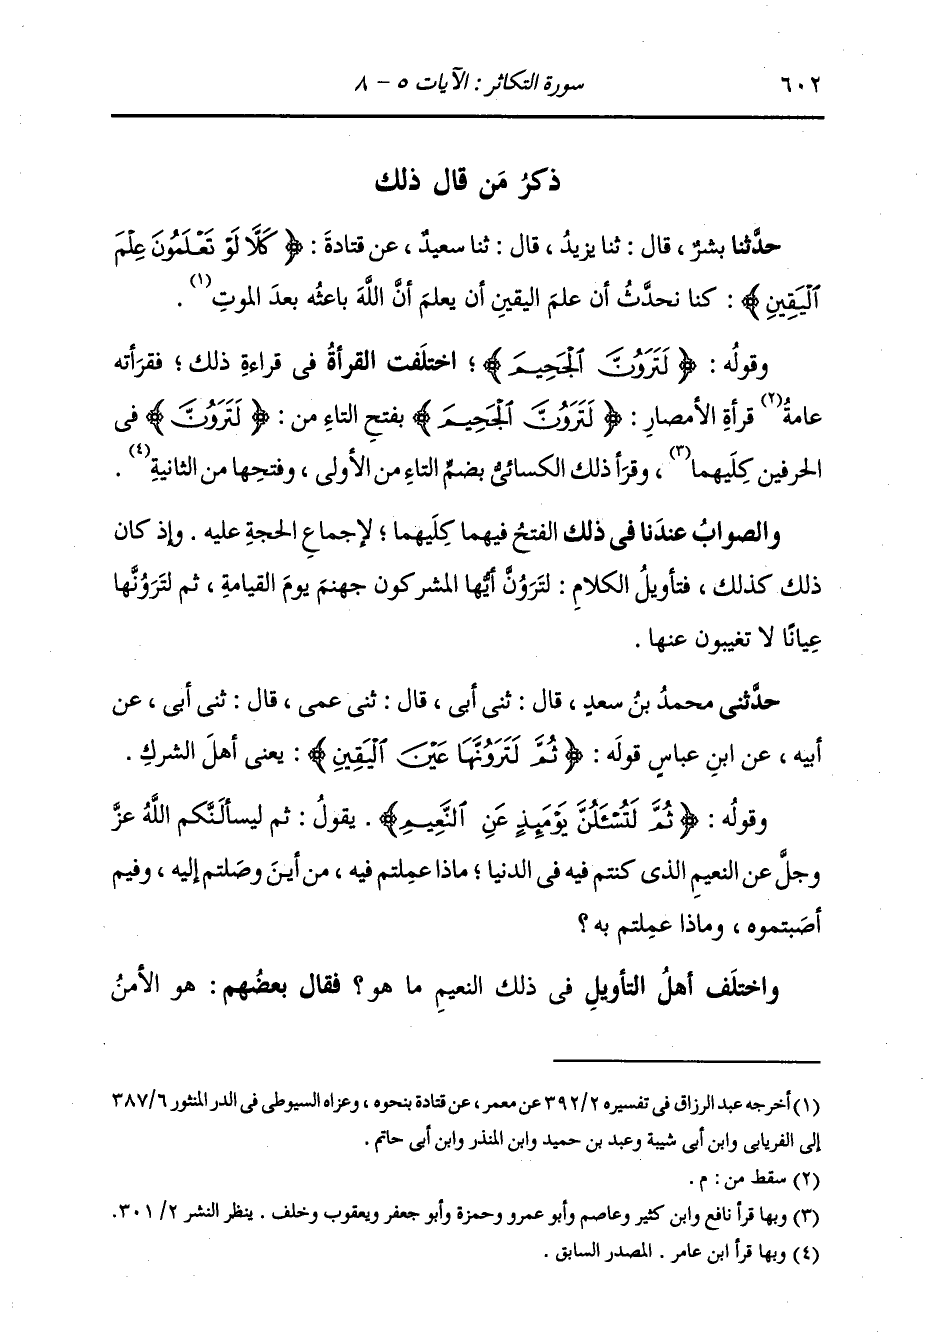 ٦٠٢ سورة التكاثر : الآيات ٥ - ٨
ذكرُ مَن قال ذلك
حدَّثنا بشرٌ ، قال : ثنا يزيدُ ، قال : ثنا سعيدٌ ، عن قتادةَ : ﴿ كَلَّا لَوْ تَعْلَمُونَ عِلْمَ
ٱلْيَقِينِ ﴾ : كنا نحدَّثُ أن علمَ اليقينِ أن يعلمَ أنَّ اللَّهَ باعثُه بعدَ الموتِ(١) .
وقولُه : ﴿ لَتَرَوُنَّ ٱلْجَحِيمَ ﴾ ؛ اختلَفت القرأةُ فى قراءةِ ذلك ؛ فقرَأته
عامةُ(٢) قرأةِ الأمصارِ : ﴿ لَتَرَوُنَّ ٱلْجَحِيمَ ﴾ بفتحِ التاءِ من : ﴿ لَتَرَوُنَّ ﴾ فى
الحرفين كِلَيهما(٣) ، وقرَأ ذلك الكسائىُّ بضمِّ التاءِ من الأولى ، وفتحِها من الثانيةِ(٤) .
والصوابُ عندَنا فى ذلك الفتحُ فيهما كِلَيهما ؛ لإجماعِ الحجةِ عليه . وإذ كان
ذلك كذلك ، فتأويلُ الكلامِ : لتَرَوُنَّ أيُّها المشركون جهنمَ يومَ القيامةِ ، ثم لتَرَوُنَّها
عِيانًا لا تغيبون عنها .
حدَّثنى محمدُ بنُ سعدٍ ، قال : ثنى أبى ، قال : ثنى عمى ، قال : ثنى أبى ، عن
أبيه ، عن ابنِ عباسٍ قولَه : ﴿ ثُمَّ لَتَرَوُنَّهَا عَيْنَ ٱلْيَقِينِ ﴾ : يعنى أهلَ الشركِ .
وقولُه : ﴿ ثُمَّ لَتُسْـَٔلُنَّ يَوْمَئِذٍ عَنِ ٱلنَّعِيمِ ﴾ . يقولُ : ثم ليسألَنَّكم اللَّهُ عزَّ
وجلَّ عن النعيمِ الذى كنتم فيه فى الدنيا ؛ ماذا عمِلتم فيه ، من أينَ وصَلتم إليه ، وفيم
أصَبتموه ، وماذا عمِلتم به ؟
واختلَف أهلُ التأويلِ فى ذلك النعيمِ ما هو ؟ فقال بعضُهم : هو الأمنُ
(١) أخرجه عبد الرزاق فى تفسيره ٣٩٢/٢ عن معمر ، عن قتادة بنحوه ، وعزاه السيوطى فى الدر المنثور ٣٨٧/٦
إلى الفريابى وابن أبى شيبة وعبد بن حميد وابن المنذر وابن أبى حاتم .
(٢) سقط من : م .
(٣) وبها قرأ نافع وابن كثير وعاصم وأبو عمرو وحمزة وأبو جعفر ويعقوب وخلف . ينظر النشر ٢/ ٣٠١.
(٤) وبها قرأ ابن عامر . المصدر السابق .